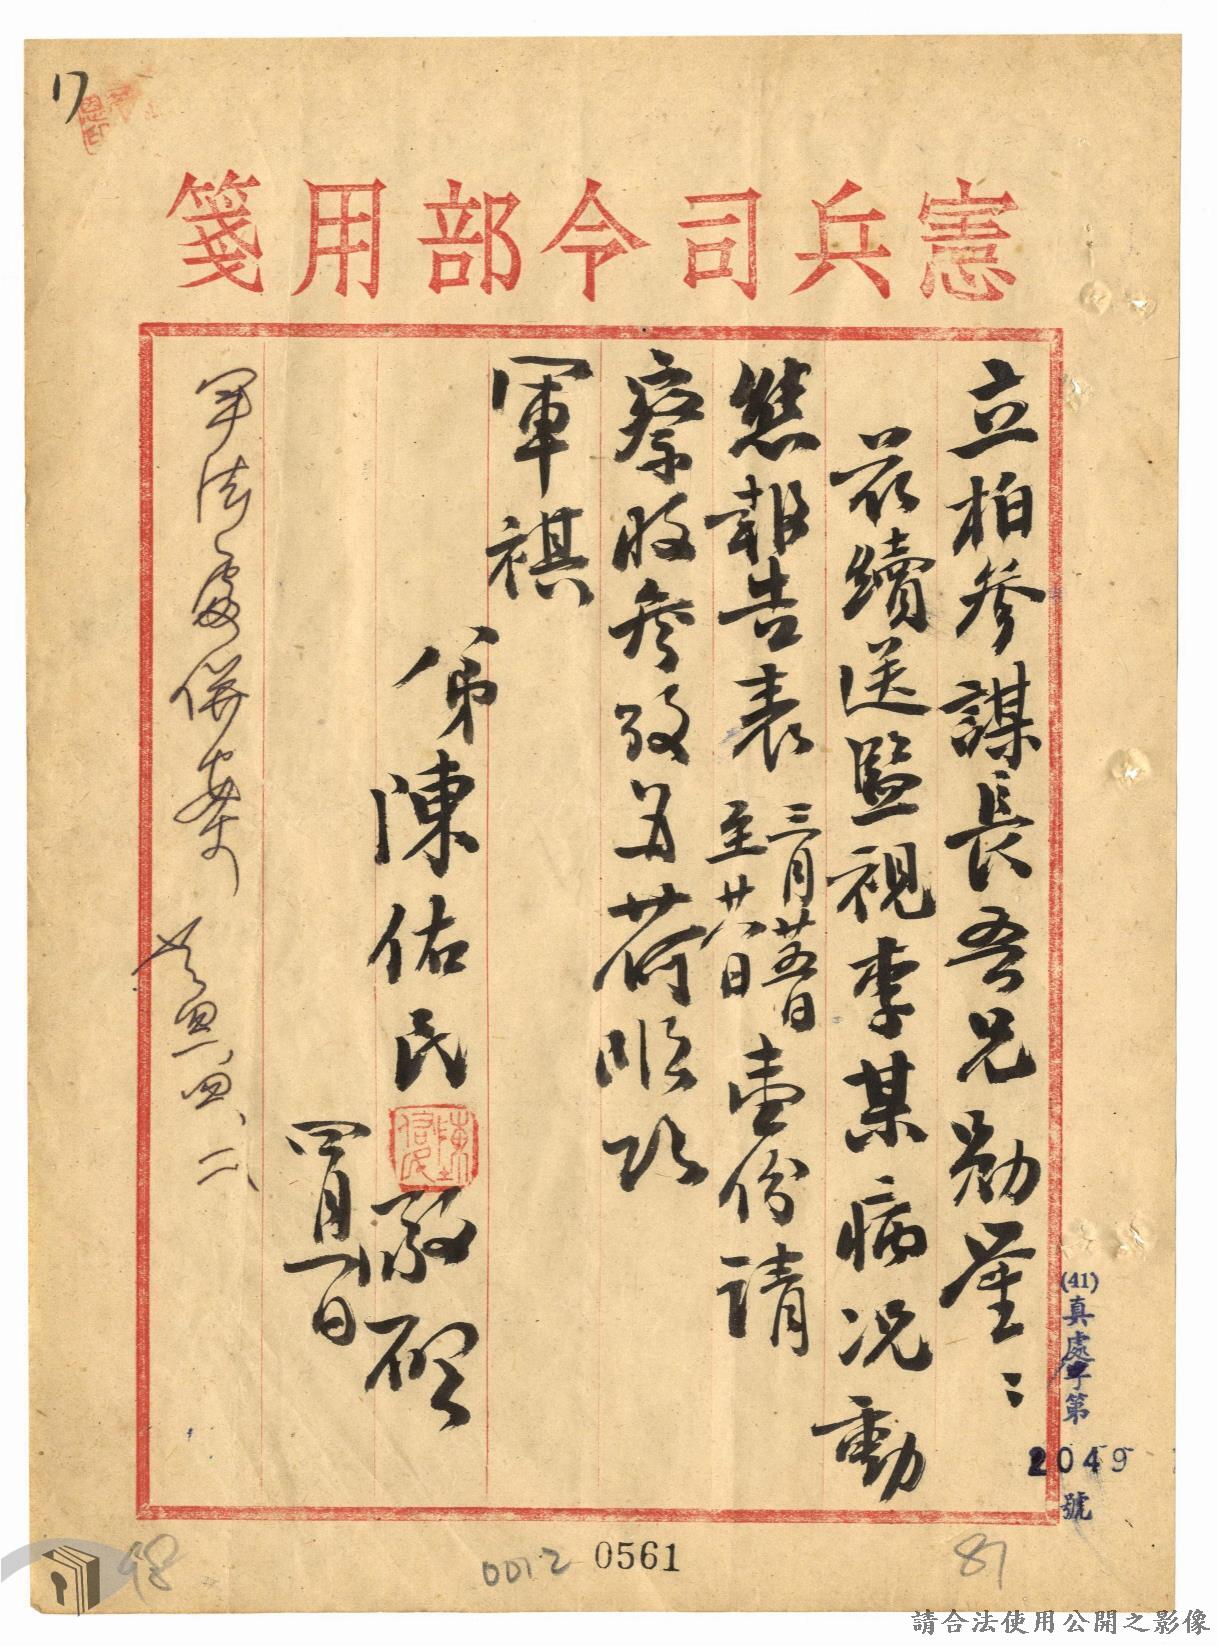 17
憲兵司令部用箋
立柏參謀長吾兄勛鑒:
茲續送監視李某病況動
態報告表三月廿五日至廿八日壹份請
察收參攷為荷順頌
軍祺
弟陳佑民敬啟
四月一日
軍法處併案
四、二
(41)真處字第
2049
號
98
0012
0561
81
請合法使用公開之影像